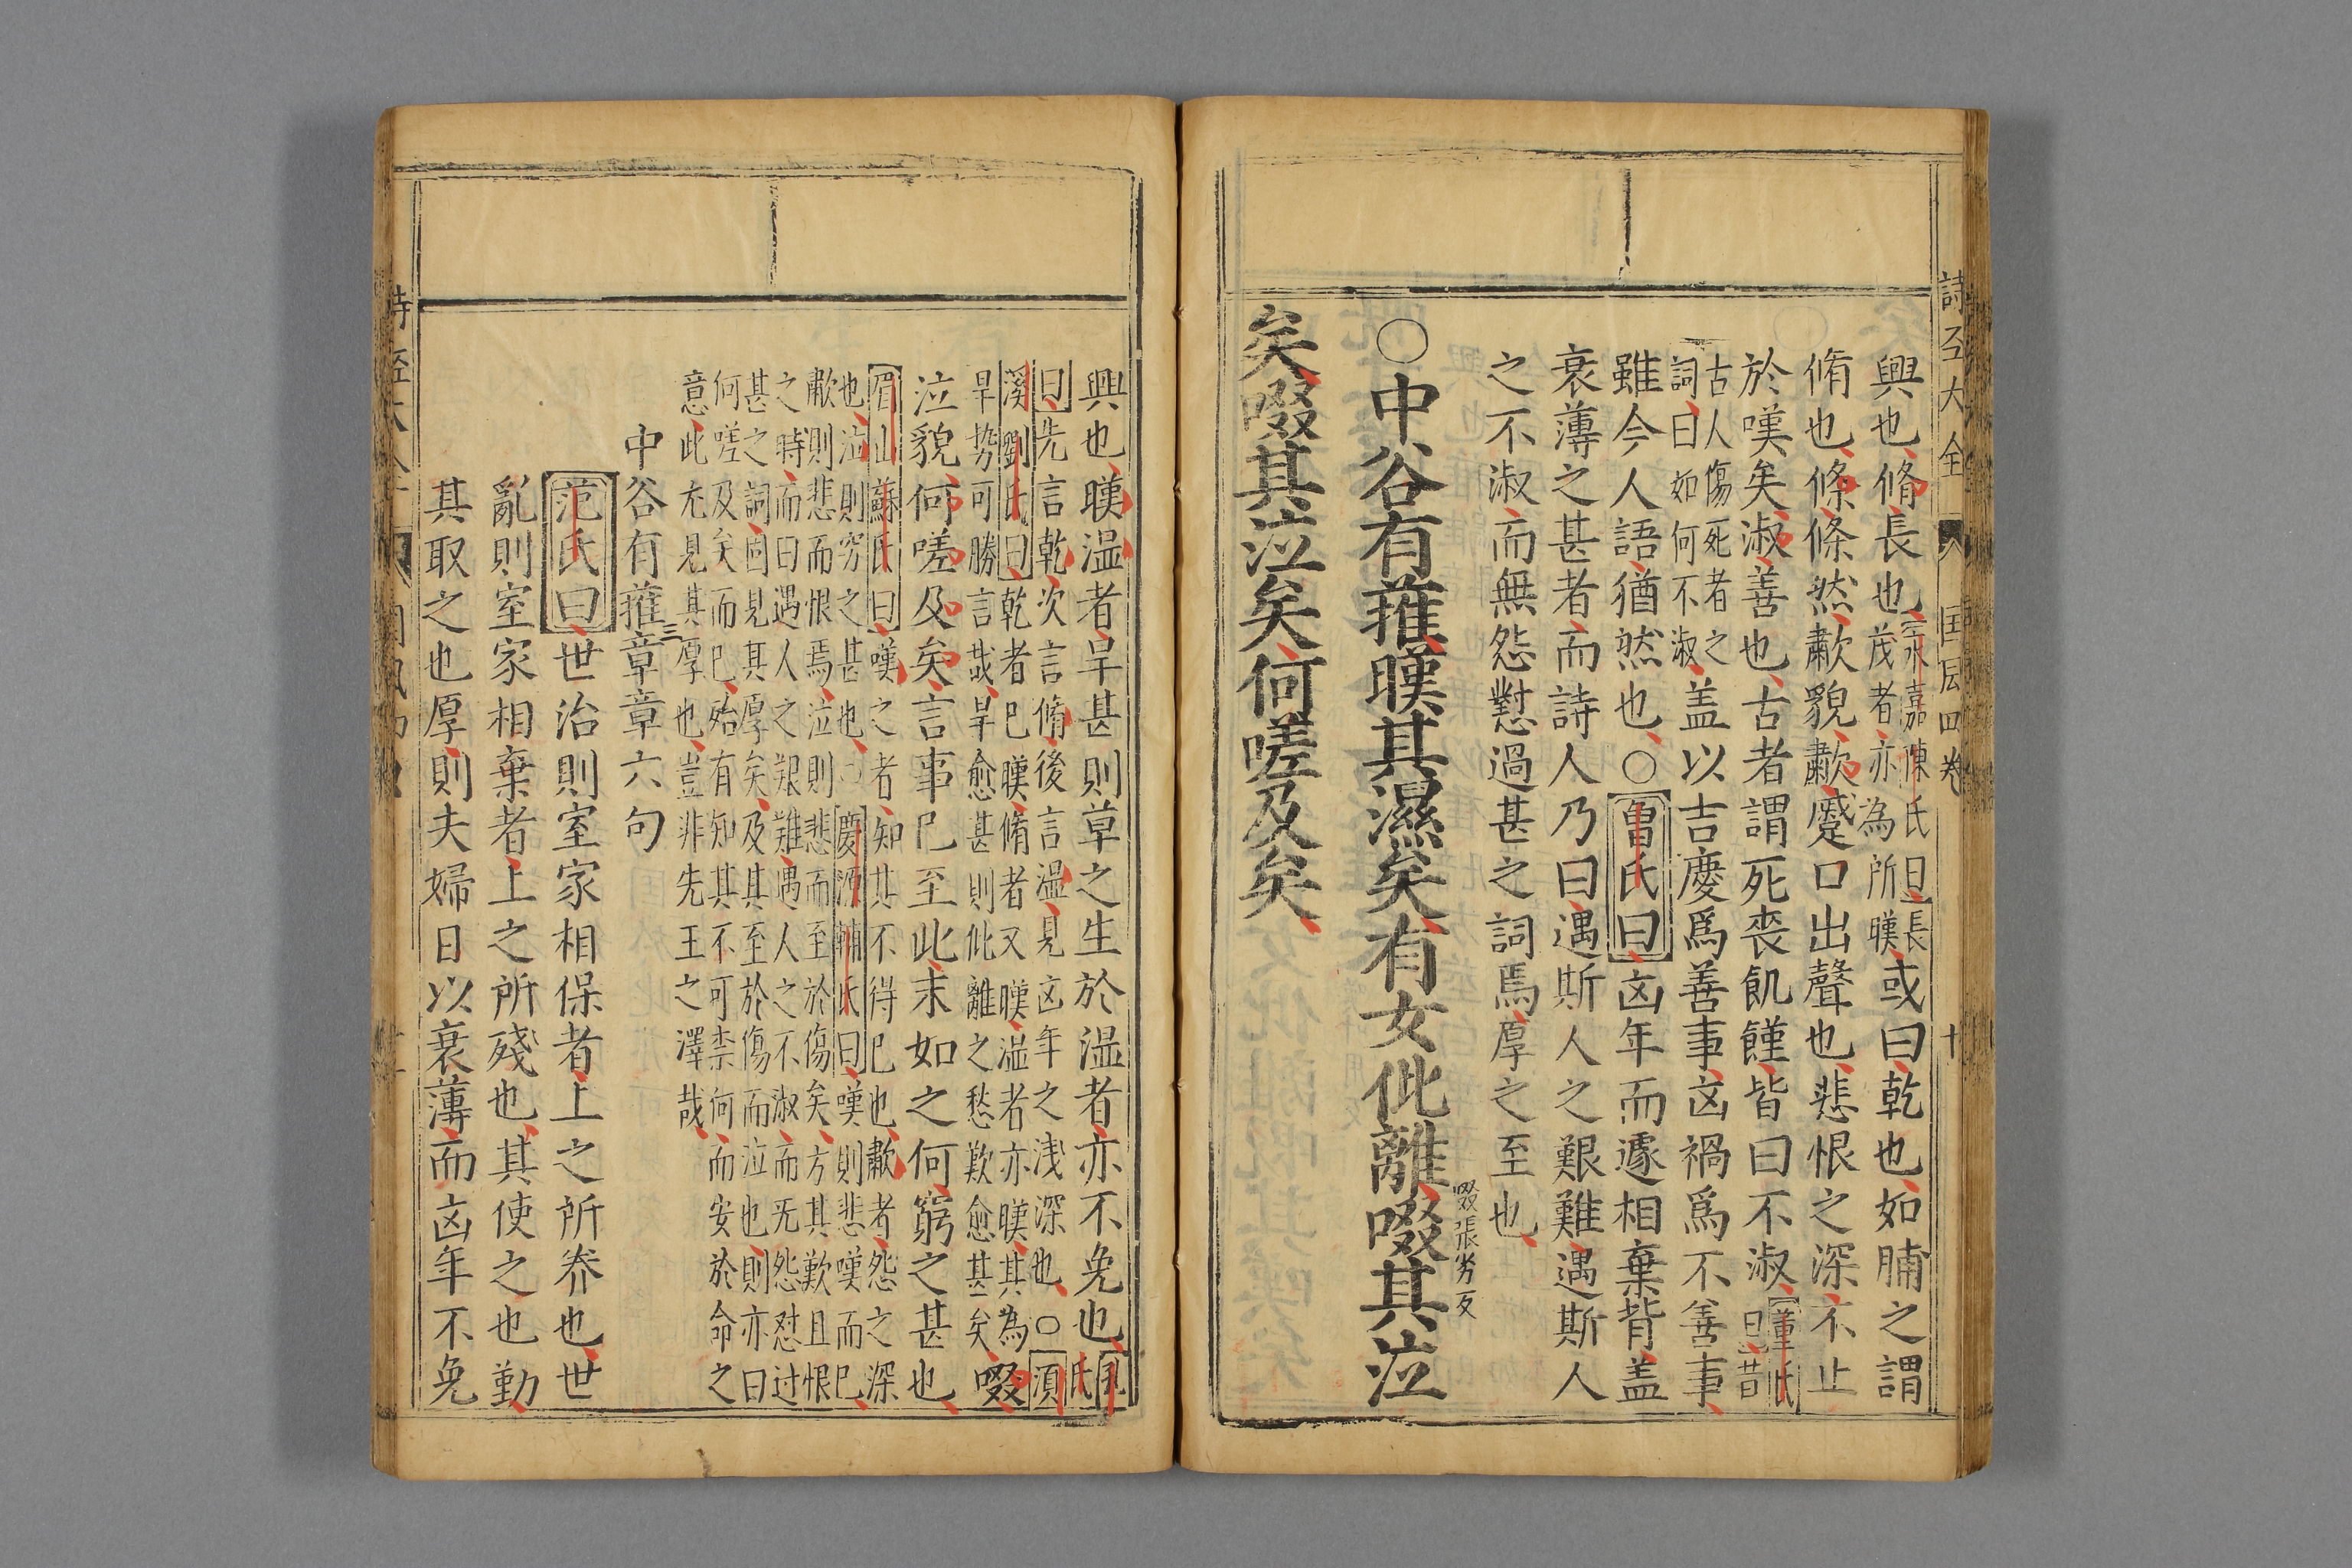 詩經大全 國風四卷 十
興也脩長也永嘉陳氏曰長茂者亦為所暵或曰乾也如脯之謂
脩也條條然歗貌歗蹙口出聲也悲恨之深不止
於嘆矣淑善也古者謂死喪飢饉皆曰不淑董氏曰昔
古人傷死者之詞曰如何不淑盖以吉慶爲善事凶禍爲不善事
雖今人語猶然也○曾氏曰凶年而遽相棄背盖
衰薄之甚者而詩人乃曰遇斯人之艱難遇斯人
之不淑而無怨懟過甚之詞焉厚之至也
○中谷有蓷暵其濕矣有女仳離啜其泣
啜張劣反
矣啜其泣矣何嗟及矣
興也暵濕者旱甚則草之生於濕者亦不免也孔氏
曰先言乾次言脩後言濕見凶年之浅深也○須
溪劉氏曰乾者已暵脩者又暵濕者亦暵其為
旱势可勝言哉旱愈甚則仳離之愁歎愈甚矣啜
泣貌何嗟及矣言事已至此末如之何窮之甚也
眉山蘇氏曰嘆之者知其不得已也歗者怨之深
也泣則穷之甚也○慶源輔氏曰嘆則悲嘆而已
歗則悲而恨焉泣則悲而至於傷矣方其歎且恨
之時而曰遇人之艱難遇人之不淑而无怨怼过
甚之詞固見其厚矣及其至於傷而泣也則亦曰
何嗟及矣而已殆有知其不可柰何而安於命之
意此尤見其厚也豈非先王之澤哉
中谷有蓷三章章六句
范氏曰世治則室家相保者上之所养也世
亂則室家相棄者上之所殘也其使之也勤
其取之也厚則夫婦日以衰薄而凶年不免